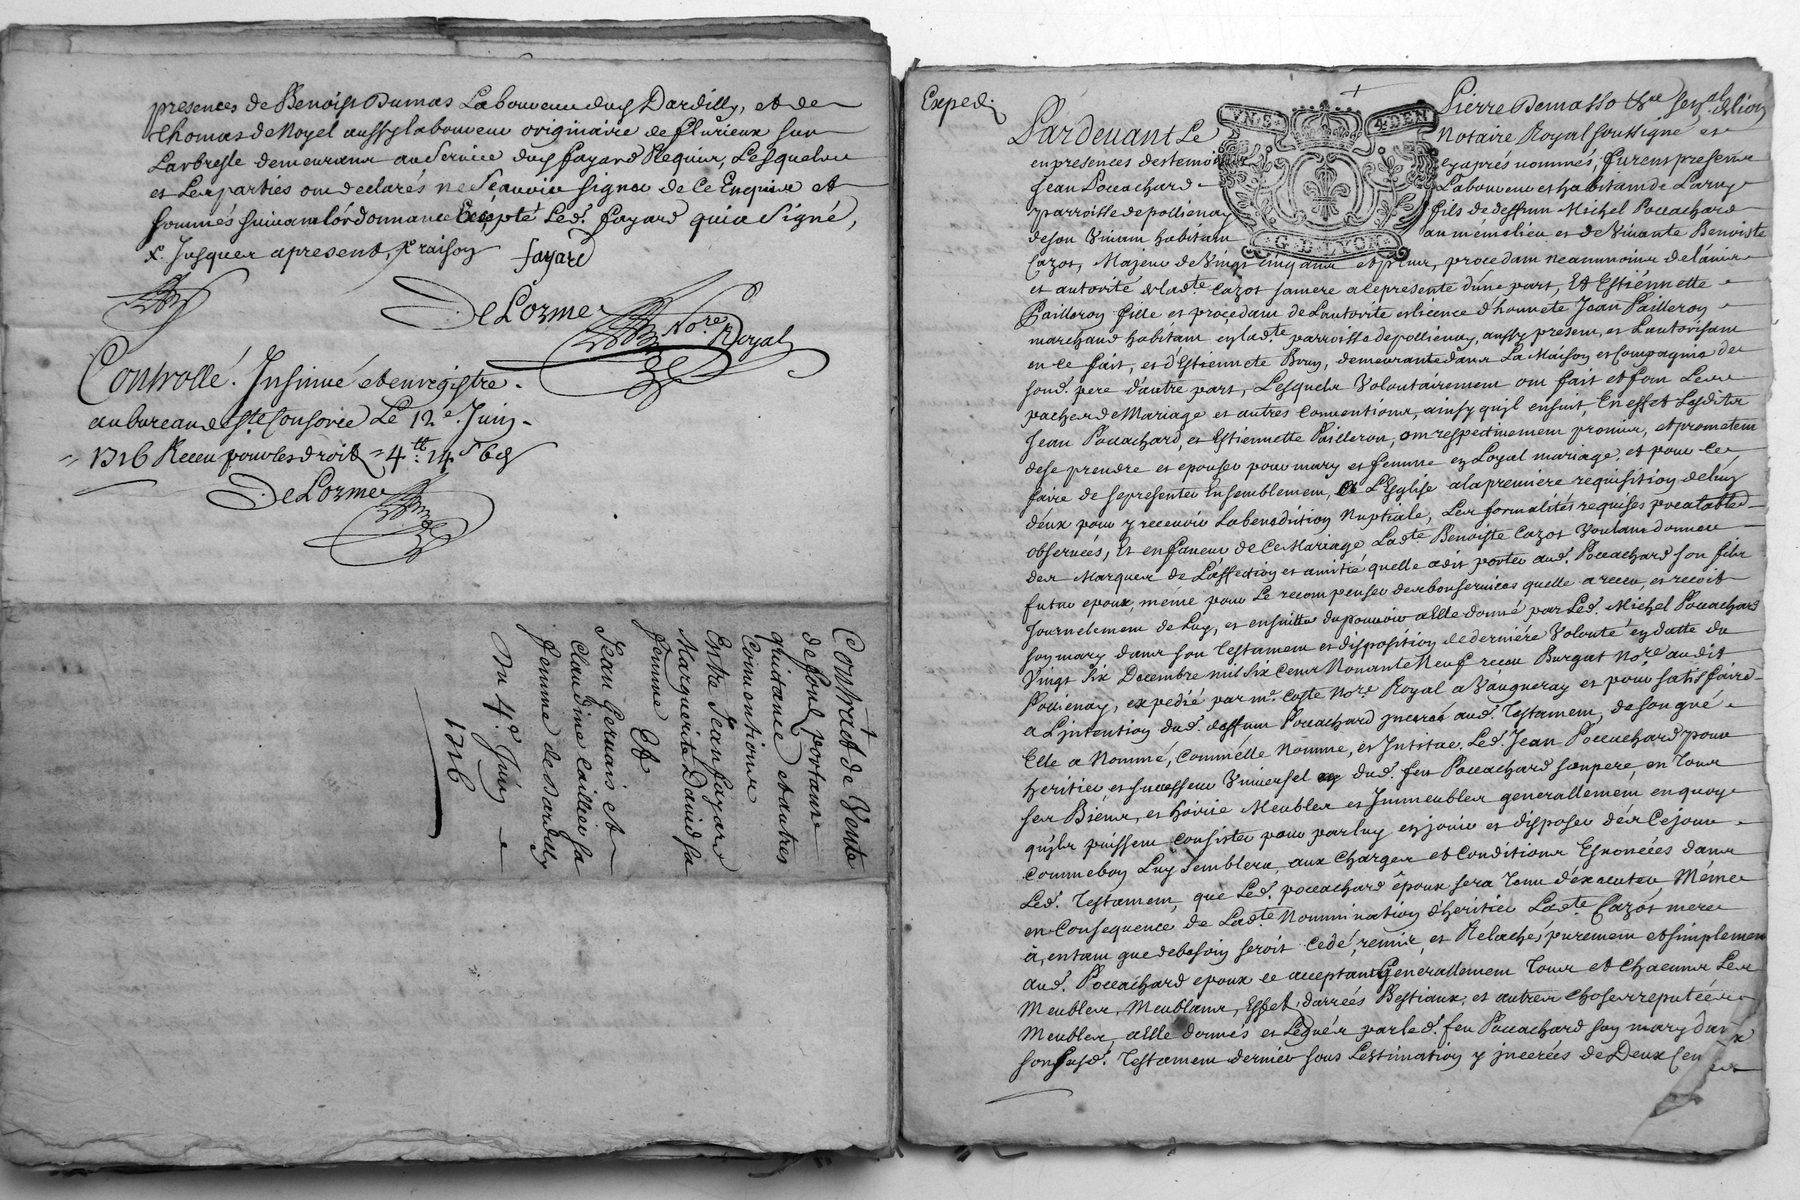 presences de Benoist Dumas Laboureur dud. Dardilly, et de
Thomas de Noyel aussy laboureur originaire de fleurieux sur
Larbresle demeurant au service dud. fayard Requis, Lesquels
et Les parties ont declarés ne scavoir signer de ce Enquis et
sommés suivant l'ordonnance Excepté Led. fayard qui a signé,
x. Jusques apresent, x raison fayard
De Lorme
No.re Royal
Controllé. Insinué et enregistré
au bureau de Ste Consorce Le 12.e Juin
1716 Receu pour les droits 4.tt 14 s 6 d
De Lorme
Contract de Vente
de fond portant
quittance et autres
Conventions
Entre Jean fayard
Marguerite David sa
femme Et
Jean Gervais et
Claudine Caillier sa
femme de dardilly
Du 4.e Juin
1716
Exped.
Pierre Demasso
VN.S. 4.DEN
G.D.LYON
Pardevant Le Notaire Royal soussigné et
en presences des temoins cy aprés nommés, furent presents
Jean Pocachard Laboureur et habitant de Larny
parroisse de pollienay fils de deffunt Michel Pocachard
de son vivant habitant au meme lieu et de vivante Benoiste
Cazot, Majeur de vingt cinq ans et plus, procedant neammoins de l'avis
et autorité de lad.te Cazot sa mere a ce presente d'une part, Et Estiennette
Pailleron fille et procedant de L'autorité et licence d'honnete Jean Pailleron
marchand habitant en lad.te parroisse de pollienay, aussy present, et L'autorisant
en ce fait, et d'Estiennete Brun, demeurante dans La Maison et Compagnie de
sond. pere d'autre part, Lesquels Volontairement ont fait et font Les
paches de Mariage et autres Conventions, ainsy qu'il ensuit, En effet Lesdits
Jean Pocachard, et Estiennette Pailleron, ont respectivement promis, et promettent
de se prendre et epouser pour mary et femme en Loyal mariage, et pour ce
faire de se presenter Ensemblement, a L'Eglise a la premiere requisition de l'un
deux pour y recevoir La benediction Nuptiale, Les formalités requises preatable.
observées, Et en faveur de Ce Mariage Lad.te Benoiste Cazot voulant donner
des Marques de L'affection et amitié quelle a dit porter aud. Pocachard son fils
futur epoux, méme pour Le recompenser des bons services quelle a receu, et reçoit
Journelement de Luy, et ensuitte du pouvoir a elle donné par Led. Michel Pocachard
son mary dans son Testament et disposition de derniére Volonté en datte du
Vingt six Decembre mil six Cens Nonante Neuf receu Burgat No.re audit
Pollienay, expedié par m.e Coste No.re Royal a Vaugneray et pour satisfaire
a L'intention dud. deffunt Pocachard incerée aud. Testament, de son gré
Elle a Nommé, Comm'elle Nomme, et Institue Led. Jean Pocachard pour
heritier et successeur Universel dud. feu Pocachard son pere, en Tous
ses Biens, et hoirie Meubles et Immeubles generallement en quoy
qu'ils puissent Consister pour par luy en jouir et disposer dés Ce jour
Comme bon Luy semblera, aux Charges et Conditions Enoncées dans
Led. Testament, que Led. pocachard époux sera Tenu d'executer, Méme
en Consequence de Lad.te Nommination d'heritier Lad.te Cazot mere
à, en tant que de besoin seroit Cedé, remis, et Relaché, purement et simplement
aud. Pocachard epoux ce acceptant Generallement Tous et Chacuns Les
Meubles, Meublans, Effet, darrées Bestiaux, et autres Choses reputées
Meubles, a elle donnés et Legués par led. feu Pocachard son mary dans
son susd. Testament dernier sous L'estimation y incerées de Deux Cens